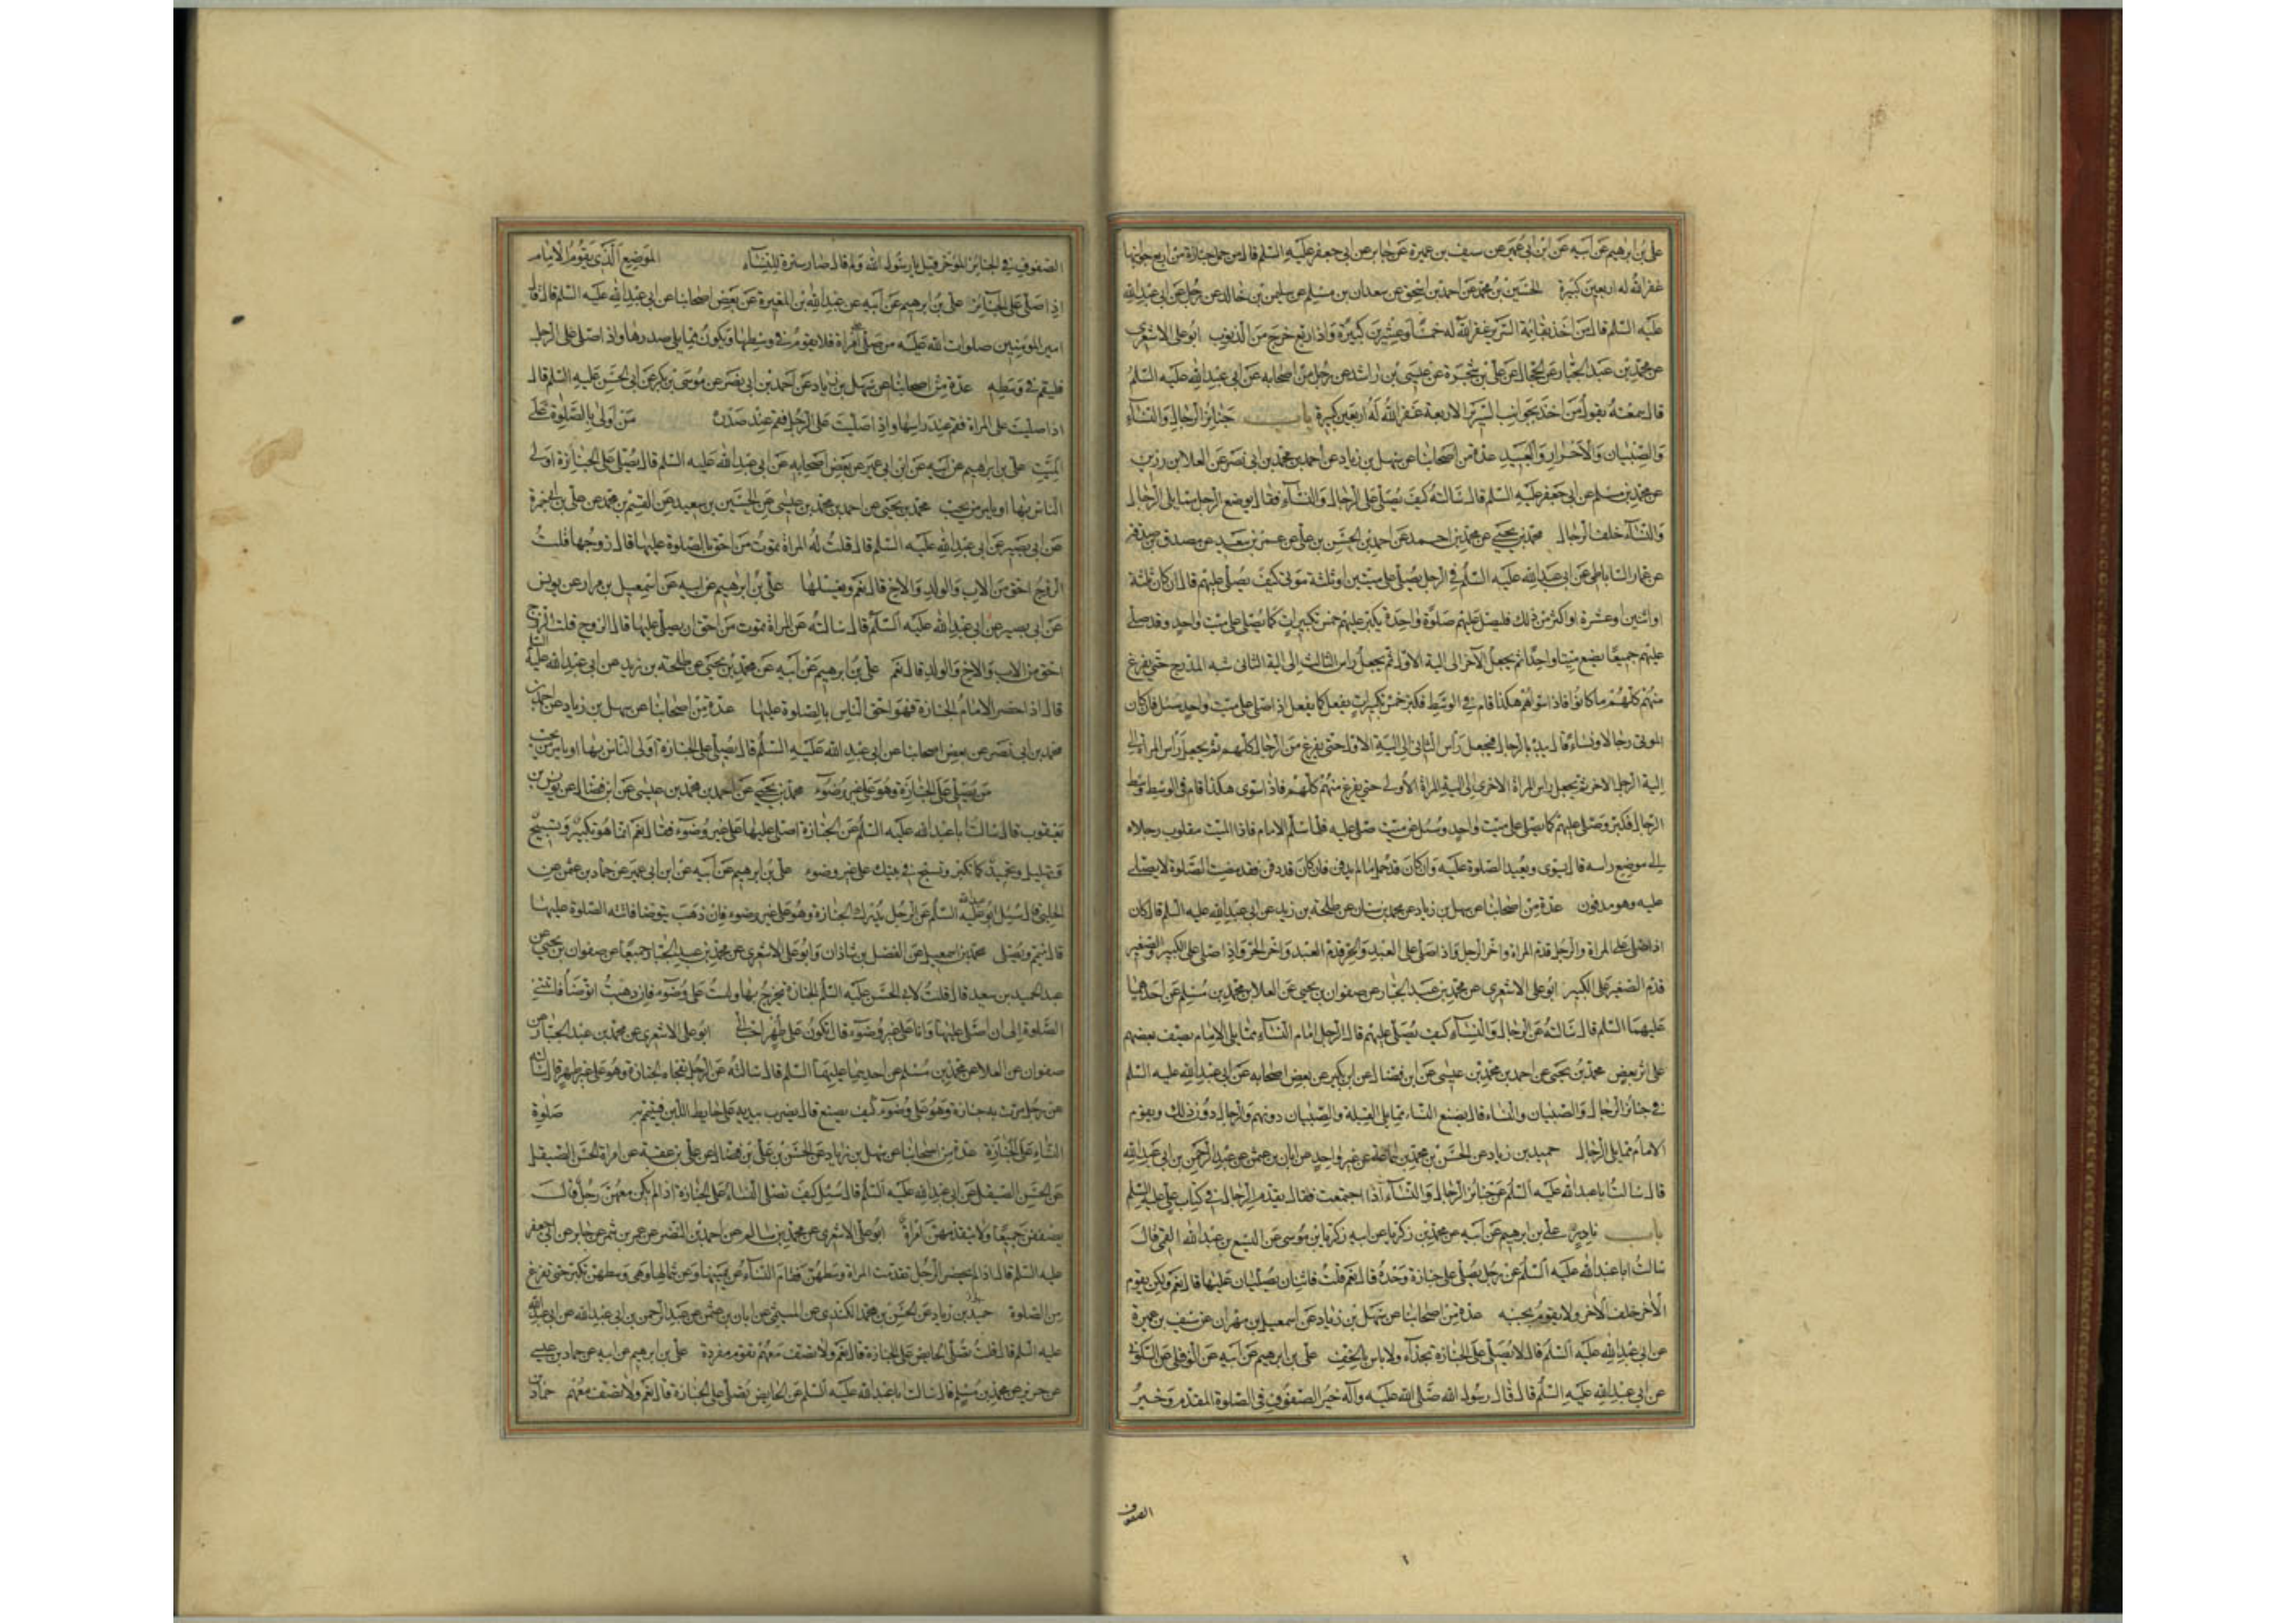 علي بن ابرهيم عن ابيه عن ابن ابي عمير عن سيف بن عميرة عن جابر عن ابي جعفر عليه السلم قال من حمل جنازة من اربع جوانبها
غفر الله له اربعين كبيرة الحسين بن محمد عن احمد بن اسحق عن سعدان بن مسلم عن سليمن بن خالد عن رجل عن ابي عبد الله
عليه السلم قال من اخذ بقائمة السرير غفر الله له خمسا وعشرين كبيرة واذا ربع خرج من الذنوب ابو علي الاشعري
عن محمد بن عبد الجبار عن الحجال عن علي بن شجرة عن عيسى بن راشد عن رجل من اصحابه عن ابي عبد الله عليه السلم
قال سمعته يقول من اخذ بجوانب السرير الاربعة غفر الله له اربعين كبيرة باب جنائز الرجال والنسآء
والصبيان والاحرار والعبيد عدة من اصحابنا عن سهل بن زياد عن احمد بن محمد بن ابي نصر عن العلا بن رزين
عن محمد بن مسلم عن ابي جعفر عليه السلم قال سالته كيف يصلى على الرجال والنسآء فقال يوضع الرجل مما يلي الرجال
والنسآء خلف الرجال محمد بن يحيى عن محمد بن احمد عن احمد بن الحسن بن علي عن عمرو بن سعيد عن مصدق بن صدقة
عن عمار الساباطي عن ابي عبد الله عليه السلم في الرجل يصلي على ميتين او ثلثة موتى كيف يصلي عليهم قال ان كان ثلثة
او اثنين او عشرة او اكثر من ذلك فليصل عليهم صلوة واحدة يكبر عليهم خمس تكبيرات كما يصلي على ميت واحد وقد صلى
عليهم جميعا يضع ميتا واحدا ثم يجعل الآخر الى الية الاول ثم يجعل راس الثالث الى الية الثاني شبه المدرج حتى يفرغ
منهم كلهم ما كانوا فاذا سواهم هكذا قام في الوسط فكبر خمس تكبيرات يفعل كما يفعل اذا صلى على ميت واحد سئل فان كان
الموتى رجالا ونساء قال يبدء بالرجال فيجعل رأس الثاني الى الية الاول حتى يفرغ من الرجال كلهم ثم يجعل رأس المرأة الى
الية الرجل الاخير ثم يجعل راس المراة الاخرى الى الية المراة الاولى حتى يفرغ منهم كلهم فاذا سوى هكذا قام في الوسط وسط
الرجال فكبر وصلى عليهم كما يصلي على ميت واحد وسئل عن ميت صلي عليه فلما سلم الامام فاذا الميت مقلوب رجلاه
الى موضع راسه قال يسوى ويعيد الصلوة عليه وان كان قد حمل ما لم يدفن فان كان قد دفن فقد مضت الصلوة لا يصلى
عليه وهو مدفون عدة من اصحابنا عن سهل بن زياد عن محمد بن سنان عن طلحة بن زيد عن ابي عبد الله عليه السلم قال كان
اذا صلى على المراة والرجل قدم المراة واخر الرجل واذا صلى على العبد والحر قدم العبد واخر الحر واذا صلى على الكبير والصغير
قدم الصغير على الكبير ابو علي الاشعري عن محمد بن عبد الجبار عن صفوان بن يحيى عن العلا عن محمد بن مسلم عن احدهما
عليهما السلم قال سالته عن الرجال والنسآء كيف يصلى عليهم قال الرجل امام النسآء مما يلي الامام يصف بعضهم
على اثر بعض محمد بن يحيى عن احمد بن محمد بن عيسى عن ابن فضال عن ابن بكير عن بعض اصحابه عن ابي عبد الله عليه السلم
في جنائز الرجال والصبيان والنساء قال يضع النساء مما يلي القبلة والصبيان دونهم والرجال دون ذلك ويقوم
الامام مما يلي الرجال حميد بن زياد عن الحسن بن محمد بن سماعة عن غير واحد عن ابان بن عثمن عن عبد الرحمن بن ابي عبد الله
قال سالت ابا عبد الله عليه السلم عن جنائز الرجال والنسآء اذا اجتمعت فقال يقدم الرجال في كتاب علي عليه السلم
باب نادر علي بن ابرهيم عن ابيه عن محمد بن زكريا عن ابيه زكريا بن موسى عن اليسع بن عبد الله القمي قال
سالت ابا عبد الله عليه السلم عن رجل يصلي على جنازة وحده قال نعم قلت فاثنان يصليان عليها قال نعم ولكن يقوم
الآخر خلف الآخر ولا يقوم بجنبه عدة من اصحابنا عن سهل بن زياد عن اسمعيل بن مهران عن سيف بن عميرة
عن ابي عبد الله عليه السلم قال لا يصلى على الجنازة بحذآء ولا باس بالخف علي بن ابرهيم عن ابيه عن النوفلي عن السكوني
عن ابي عبد الله عليه السلم قال قال رسول الله صلى الله عليه وآله خير الصفوف في الصلوة المقدم وخير
الصفوف
الصفوف في الجنائز المؤخر قيل يا رسول الله ولم قال صار سترة للنسآء الموضع الذي يقوم الامام
اذا صلى على الجنائز علي بن ابرهيم عن ابيه عن عبد الله بن المغيرة عن بعض اصحابنا عن ابي عبد الله عليه السلم قال قال
امير المؤمنين صلوات الله عليه من صلى على امراة فلا يقوم في وسطها ويكون مما يلي صدرها واذا صلى على الرجل
فليقم في وسطه عدة من اصحابنا عن سهل بن زياد عن احمد بن ابي نصر عن موسى بن بكر عن ابي الحسن عليه السلم قال
اذا صليت على المراة فقم عند راسها واذا صليت على الرجل فقم عند صدره من اولى بالصلوة على
الميت علي بن ابرهيم عن ابيه عن ابن ابي عمير عن بعض اصحابه عن ابي عبد الله عليه السلم قال يصلي على الجنازة اولى
الناس بها او يامر من يحب محمد بن يحيى عن احمد بن محمد بن عيسى عن الحسين بن سعيد عن القسم بن محمد عن علي بن ابي حمزة
عن ابي بصير عن ابي عبد الله عليه السلم قال قلت له المراة تموت من احق بالصلوة عليها قال زوجها قلت
الزوج احق من الاب والولد والاخ قال نعم ويغسلها علي بن ابرهيم عن ابيه عن اسمعيل بن مرار عن يونس
عن ابي بصير عن ابي عبد الله عليه السلم قال سالته عن المراة تموت من احق ان يصلي عليها قال الزوج قلت الزوج
احق من الاب والاخ والولد قال نعم علي بن ابرهيم عن ابيه عن محمد بن يحيى عن طلحة بن زيد عن ابي عبد الله عليه السلم
قال اذا حضر الامام الجنازة فهو احق الناس بالصلوة عليها عدة من اصحابنا عن سهل بن زياد عن احمد بن
محمد بن ابي نصر عن بعض اصحابنا عن ابي عبد الله عليه السلم قال يصلي على الجنازة اولى الناس بها او يامر من يحب
من يصلي على الجنازة وهو على غير وضوء محمد بن يحيى عن احمد بن محمد بن عيسى عن ابن فضال عن يونس بن
يعقوب قال سالت ابا عبد الله عليه السلم عن الجنازة اصلي عليها على غير وضوء فقال نعم انما هو تكبير وتسبيح
وتهليل وتحميد كما تكبر وتسبح في بيتك على غير وضوء علي بن ابرهيم عن ابيه عن ابن ابي عمير عن حماد بن عثمن عن
الحلبي قال سئل ابو عبد الله عليه السلم عن الرجل يدرك الجنازة وهو على غير وضوء فان ذهب يتوضا فاتته الصلوة عليها
قال يتيمم ويصلي محمد بن اسمعيل عن الفضل بن شاذان وابو علي الاشعري عن محمد بن عبد الجبار جميعا عن صفوان بن يحيى عن
عبد الحميد بن سعيد قال قلت لابي الحسن عليه السلم الجنازة يخرج بها ولست على وضوء فان ذهبت اتوضأ فاتتني
الصلوة الى ان اصلي عليها وانا على غير وضوء قال تكون على طهر احب الي ابو علي الاشعري عن محمد بن عبد الجبار عن
صفوان عن العلا عن محمد بن مسلم عن احدهما عليهما السلم قال سالته عن الرجل تفجاه الجنازة وهو على غير طهر قال
عن رجل مرت به جنازة وهو على وضوء كيف يصنع قال يضرب بيديه على حايط اللبن فيتيمم به صلوة
النساء على الجنازة عدة من اصحابنا عن سهل بن زياد عن الحسن بن علي بن فضال عن علي بن عقبة عن امراة الحسن الصيقل
عن الحسن الصيقل عن ابي عبد الله عليه السلم قال سئل كيف تصلي النساء على الجنازة اذا لم يكن معهن رجل قال
يصففن جميعا ولا يتقدمهن امراة ابو علي الاشعري عن محمد بن سالم عن احمد بن النضر عن عمرو بن شمر عن جابر عن ابي جعفر
عليه السلم قال اذا لم يحضر الرجل تقدمت المراة وسطهن وقام النسآء عن يمينها وعن شمالها وهي وسطهن تكبر حتى تفرغ
من الصلوة حميد بن زياد عن الحسن بن محمد الكندي عن الميثمي عن ابان بن عثمن عن عبد الرحمن بن ابي عبد الله عن ابي عبد الله
عليه السلم قال قلت تصلي الحايض على الجنازة قال نعم ولا تصف معهم تقوم مفردة علي بن ابرهيم عن ابيه عن حماد بن عيسى
عن حريز عن محمد بن مسلم قال سالت ابا عبد الله عليه السلم عن الحايض تصلي على الجنازة قال نعم ولا تصف معهم حماد